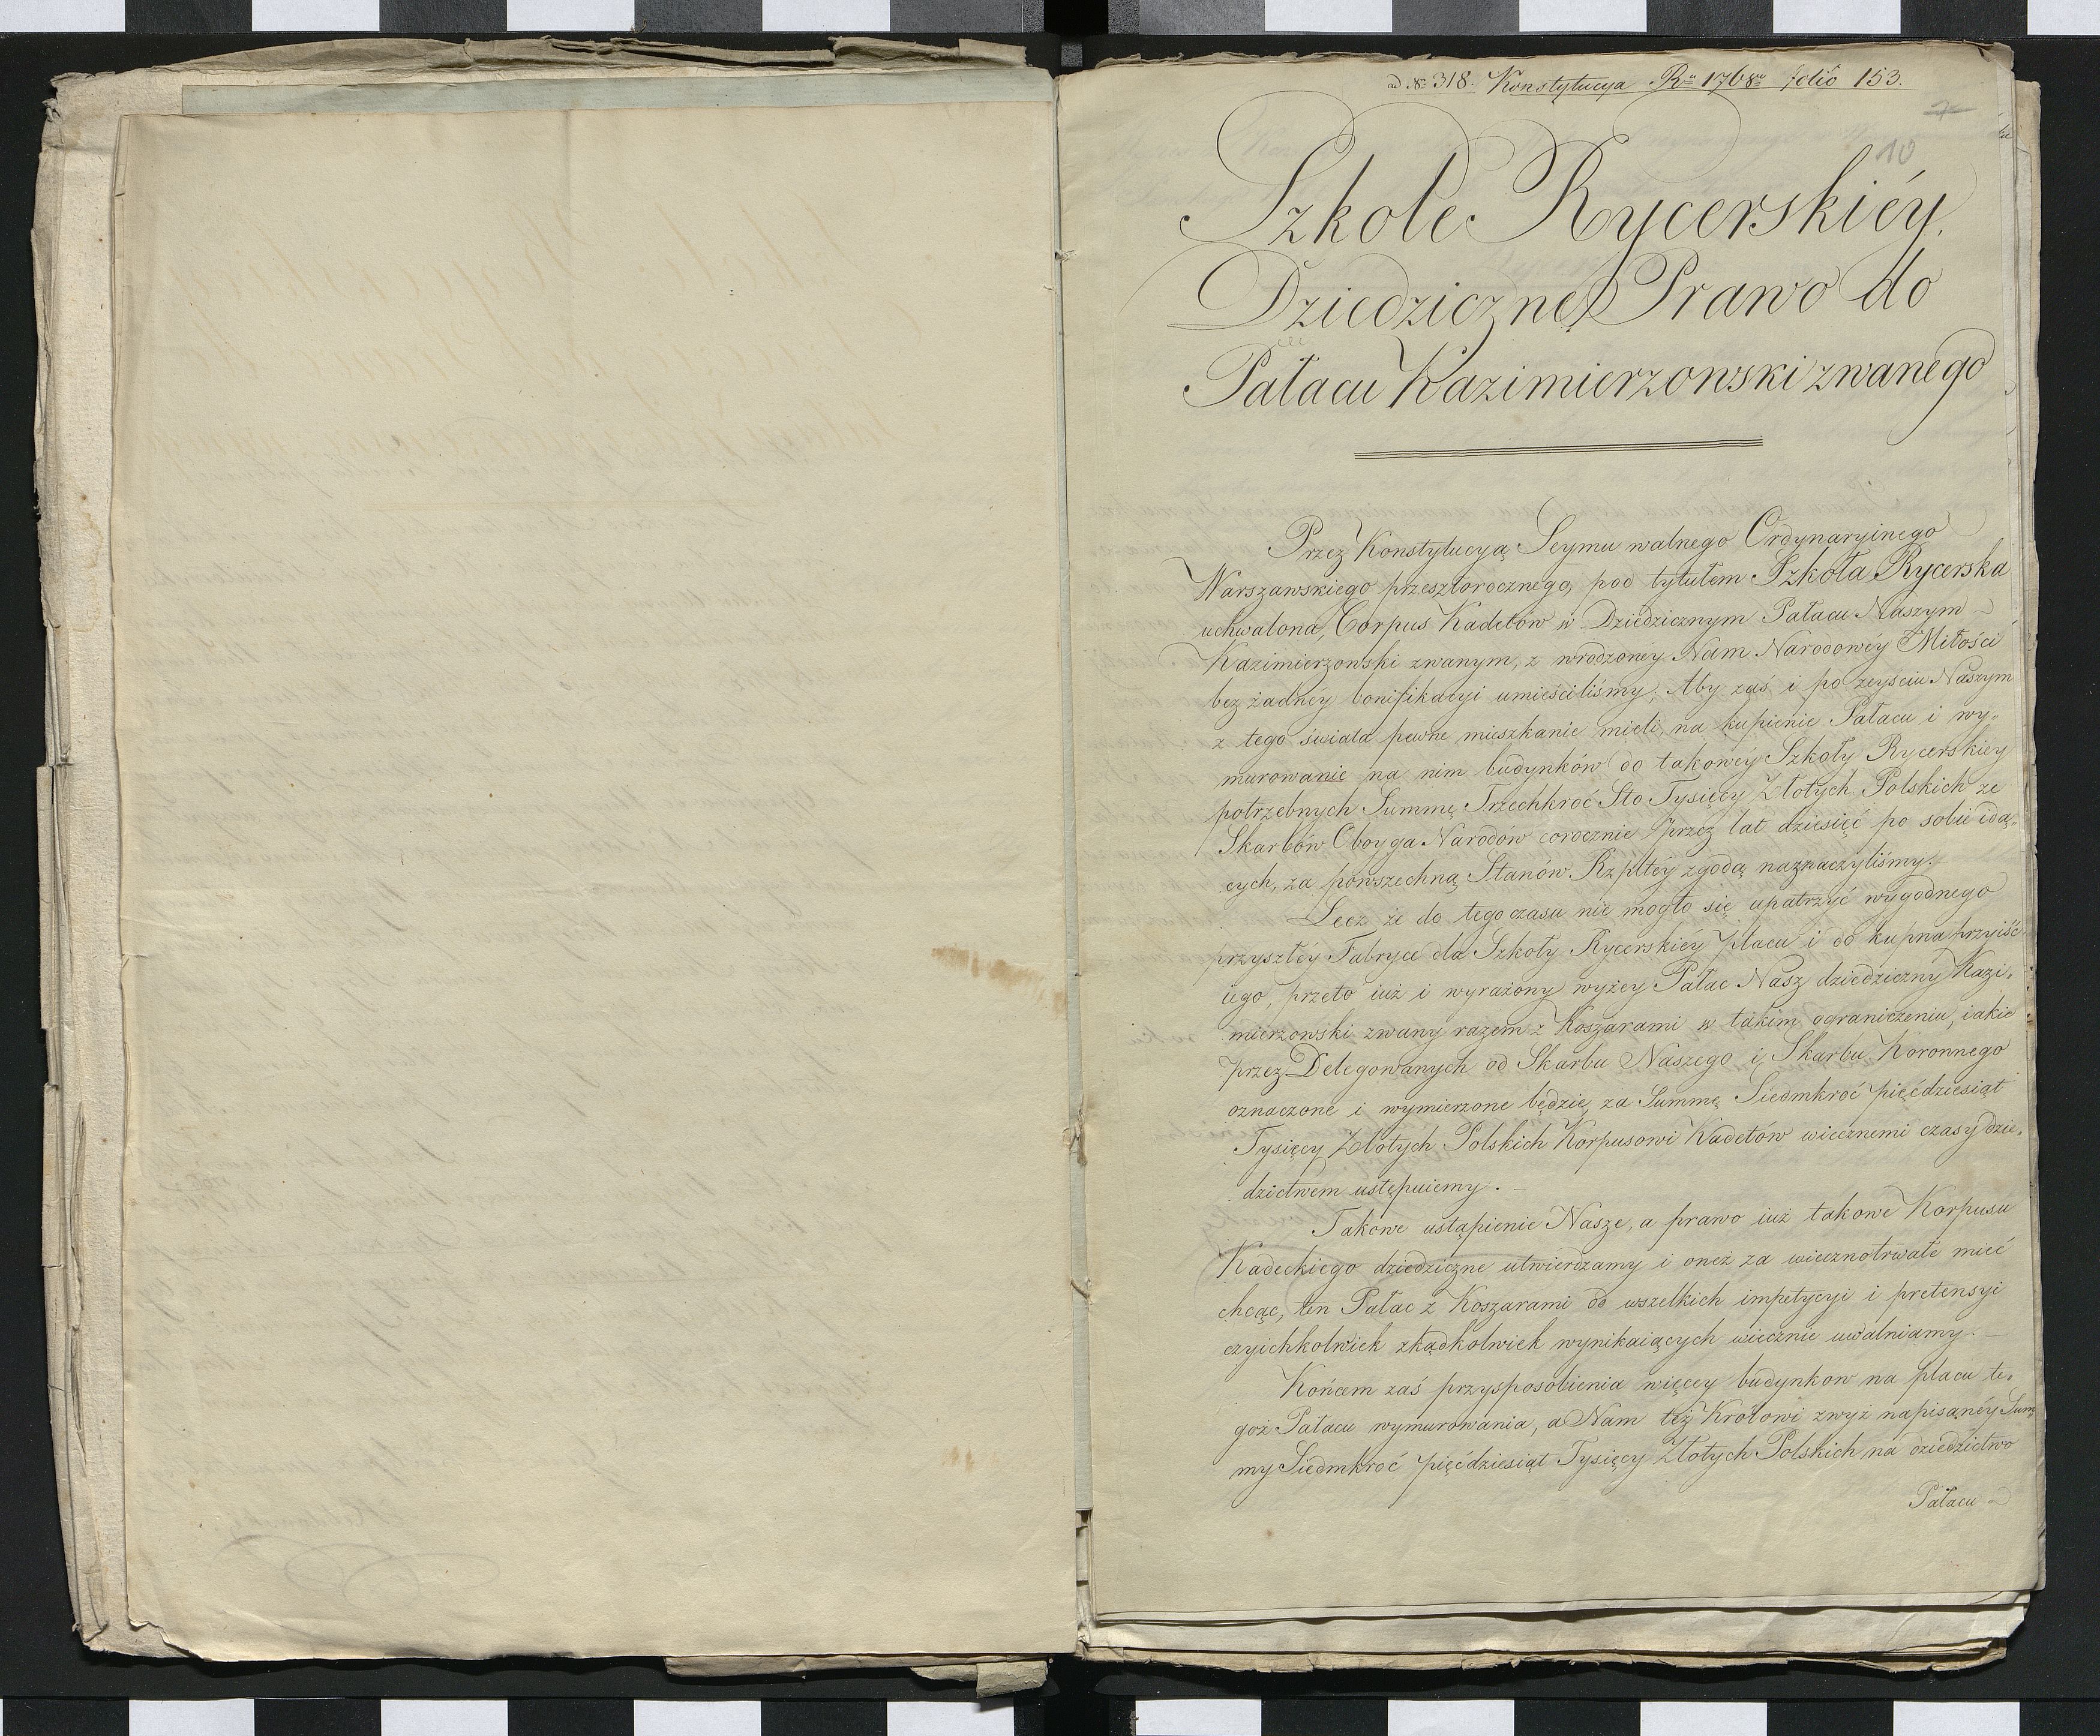 ad № 318. Konstytucya Ru 1768go folio 153.
7
10
Szkole Rycerskiéy,
Dziedziczne Prawo do
Pałacu Kazimierzowski zwanego
Przez Konstytucyą Seymu walnego Ordynaryinego
Warszawskiego przeszłorocznego, pod tytułem Szkoła Rycerska
uchwalona, Corpus Kadetów w Dziedzicznym Pałacu Naszym
Kazimierzowski zwanym, z wrodzoney Nam Narodowéy Miłości
bez żadnéy bonifikacyi umieściliśmy. Aby zaś i po zeyściu Naszym
z tego świata pewne mieszkanie mieli, na kupienie Pałacu i wy-
murowanie na nim budynków do takowéy Szkoły Rycerskiey
potrzebnych Summę Trzechkroć Sto Tysięcy Złotych Polskich ze
Skarbów Oboyga Narodów corocznie przez lat dziesięć po sobie idą-
cych, za powszechną Stanów Rzpltéy zgodą naznaczyliśmy.
Lecz że do tego czasu nie mogło się upatrzyć wygodnego
przyszłéy Fabryce dla Szkoły Rycerskiéy placu i do kupna przyiść
iego, przeto iuż i wyrażony wyżey Pałac Nasz dziedziczny Kazi-
mierzowski zwany razem z Koszarami w takim ograniczeniu, iakie
przez Delegowanych od Skarbu Naszego i Skarbu Koronnego
oznaczone i wymierzone będzie, za Summę Siedmkroć pięćdziesiąt
Tysięcy Złotych Polskich Korpusowi Kadetów wiecznemi czasy dzie-
dzictwem ustępuiemy. —
Takowe ustąpienie Nasze, a prawo iuż takowe Korpusu
Kadeckiego dziedziczne utwierdzamy i oneż za wiecznotrwałe mieć
chcąc, ten Pałac z Koszarami od wszelkich impetycyi i pretensyi
czyichkolwiek zkądkolwiek wynikaiących wiecznie uwalniamy. —
Końcem zaś przysposobienia więcey budynkow na placu te-
goż Pałacu wymurowania, a Nam też Krolowi zwyż napisanéy Sum-
my Siedmkroć pięćdziesiąt Tysięcy Złotych Polskich na dziedzictwo
Pałacu